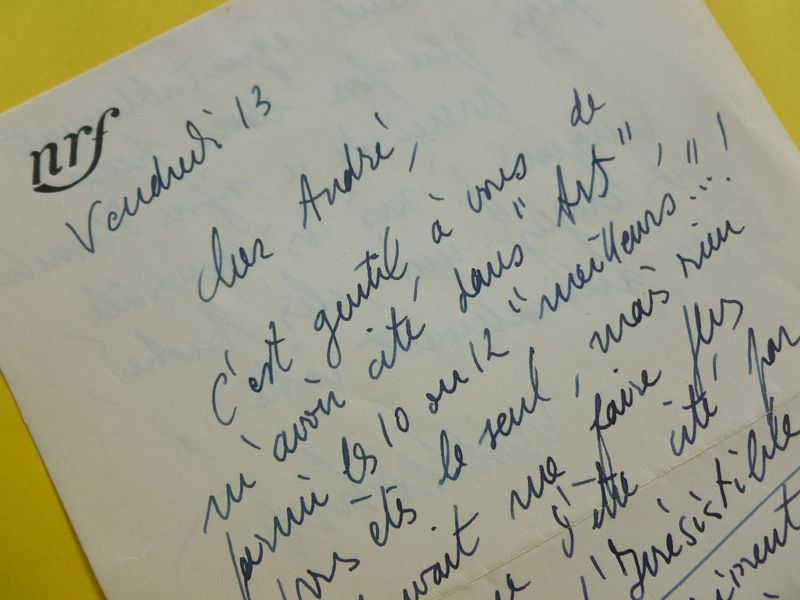 nrf
Vendredi 13
Cher André,
C'est gentil à vous de
m'avoir cité dans "Art",
parmi les 10 ou 12 "meilleurs"...!
êtes le seul, mais rien
me faire plus
d'être cité par
l'Irrésistible